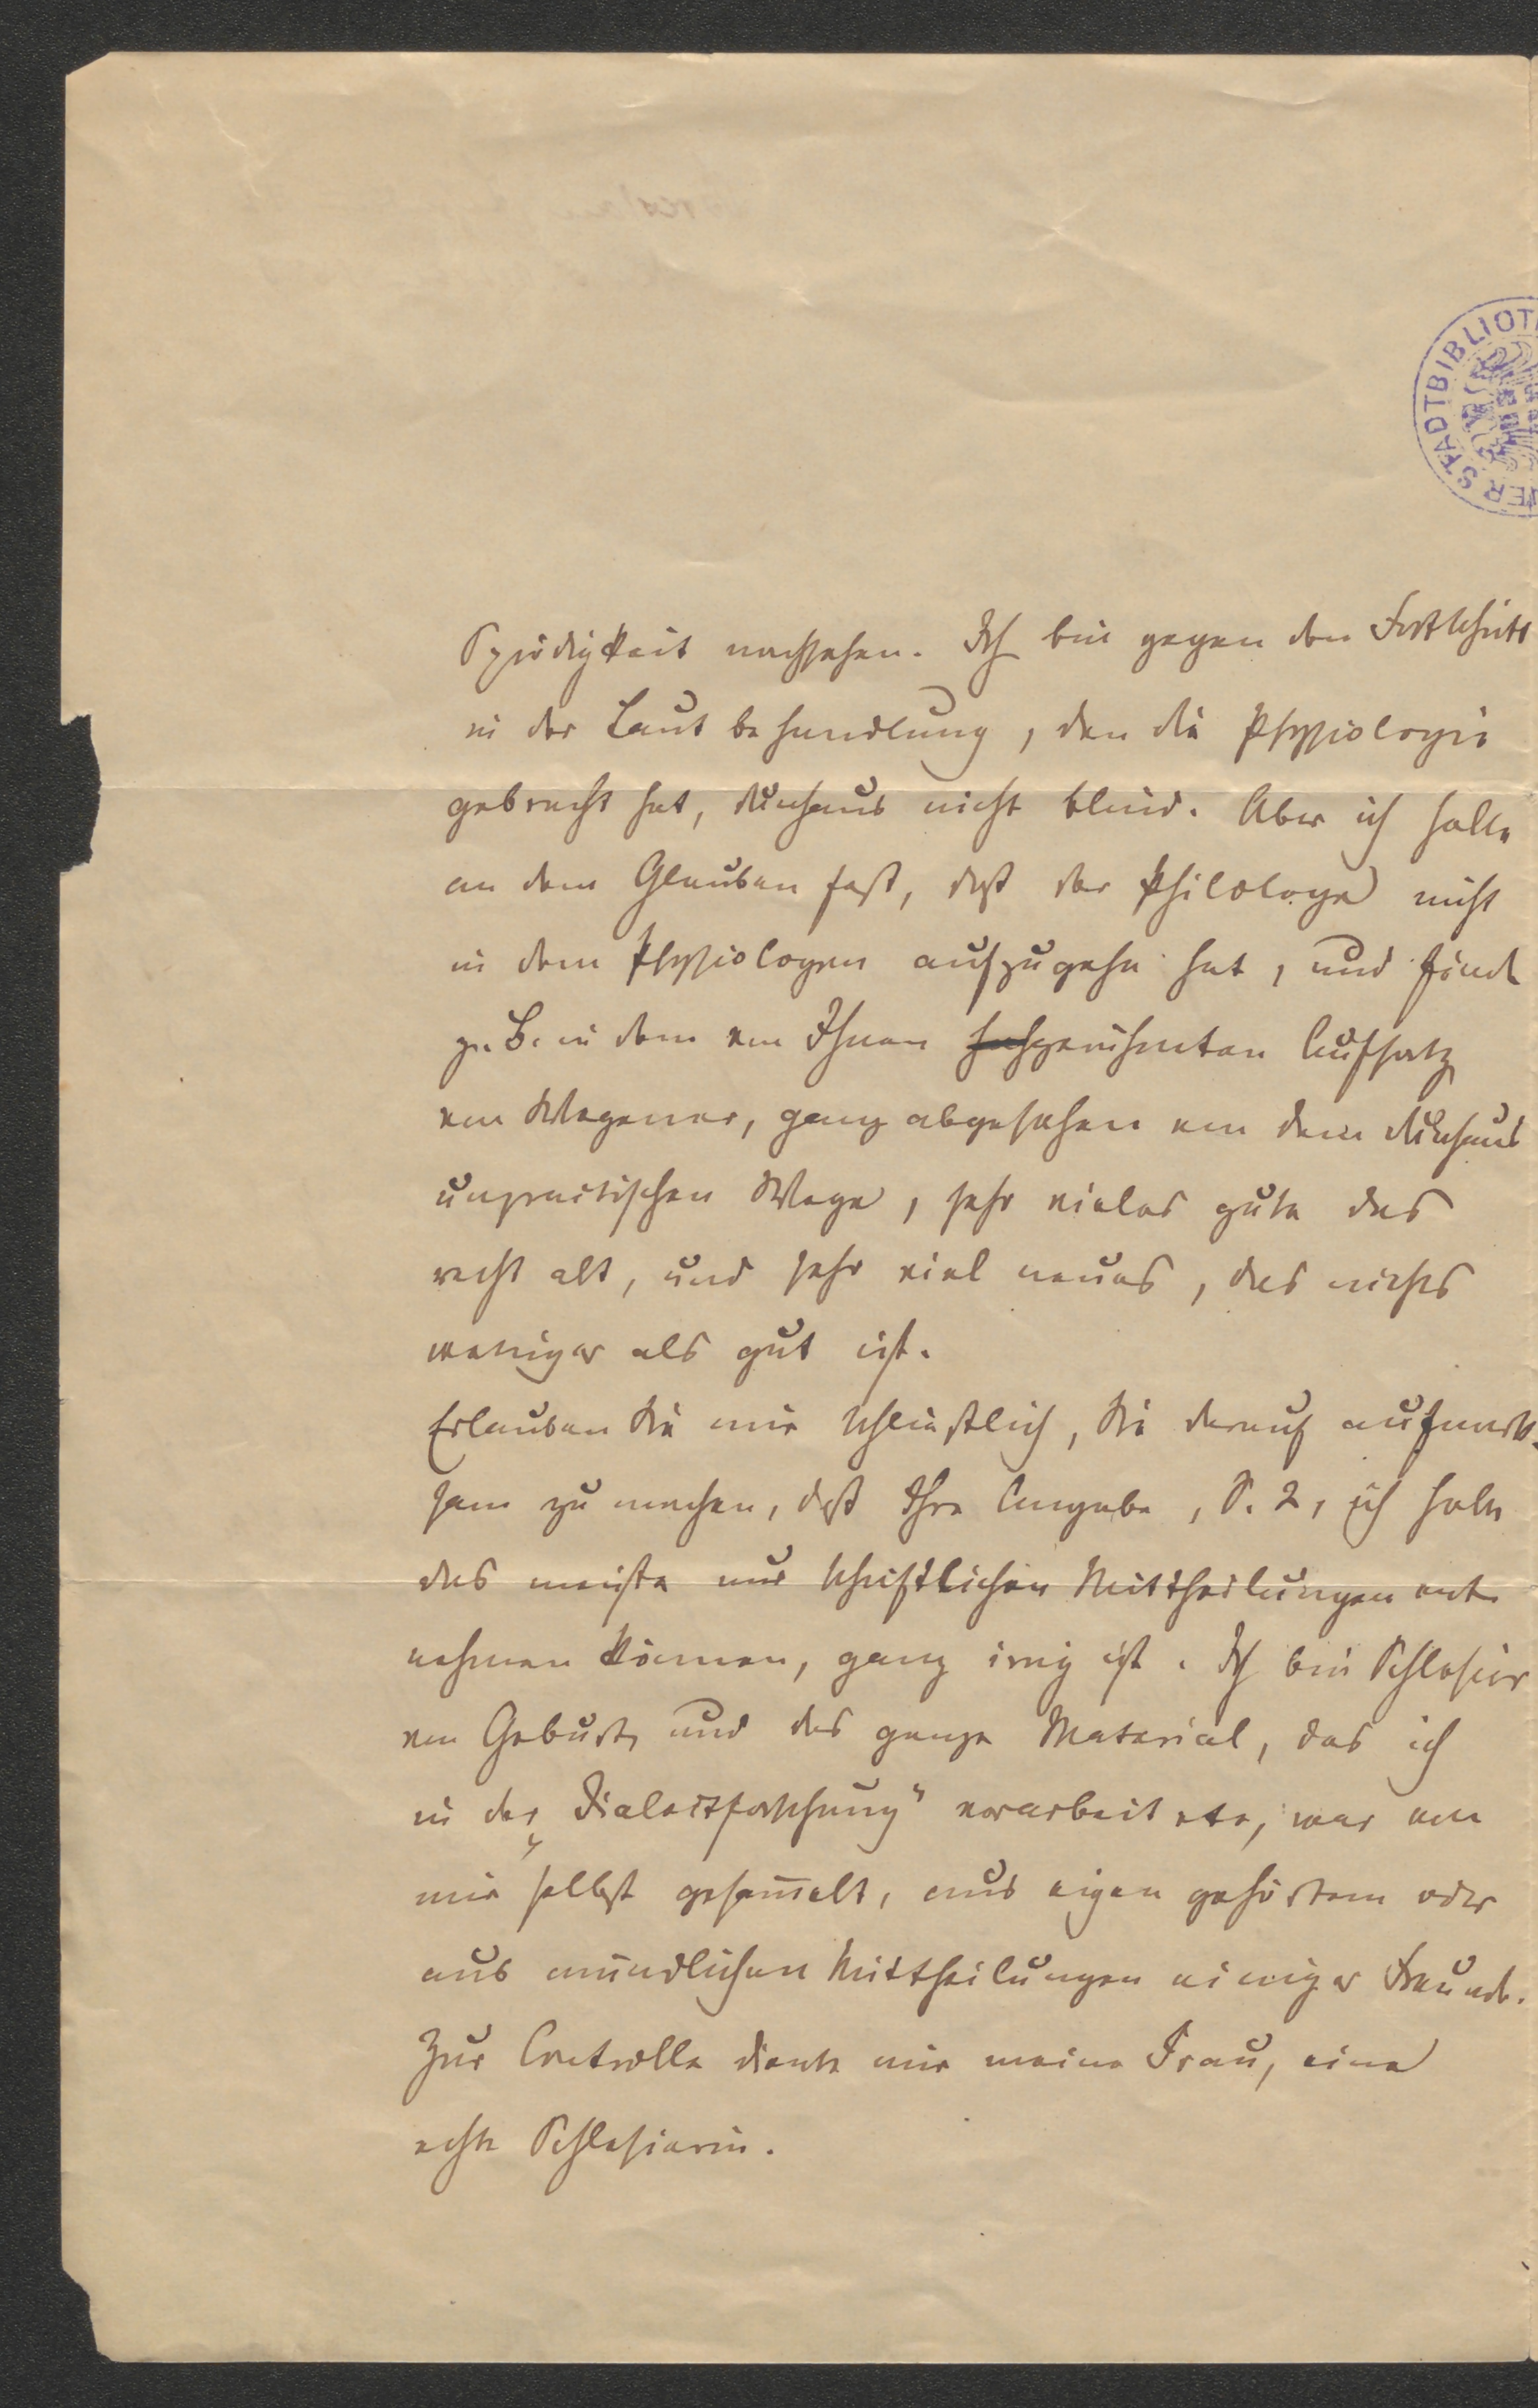 STADTBIBLIOT
ER
Sprödigkeit nachsehen. Ich bin gegen den Fortschritt
in der Lautbehandlung, den die Physiologie
gebracht hat, durchaus nicht blind. Aber ich halte
an dem Glauben fest, daß der Philologe nicht
in dem Physiologen aufzugehn hat, und finde
z. B. in dem von Ihnen gerühmten Aufsatz
von Wegener, ganz abgesehen von dem durchaus
unpractischen Wege, sehr vieles gute das
recht alt, und sehr viel neues, das nichts
weniger als gut ist.
Erlauben Sie mir schließlich, Sie darauf aufmerk-
sam zu machen, daß Ihre Angabe, S. 2, ich hätte
das meiste nur schriftlichen Mittheilungen ent
nehmen können, ganz irrig ist. Ich bin Schlesier
von Geburt, und das ganze Material, das ich
in der „Dialectforschung" verarbeitete, war von
mir selbst gesam̅elt, aus eigen gehörtem oder
aus mündlichen Mittheilungen einiger Freunde.
Zur Controlle diente mir meine Frau, eine
echte Schlesierin.